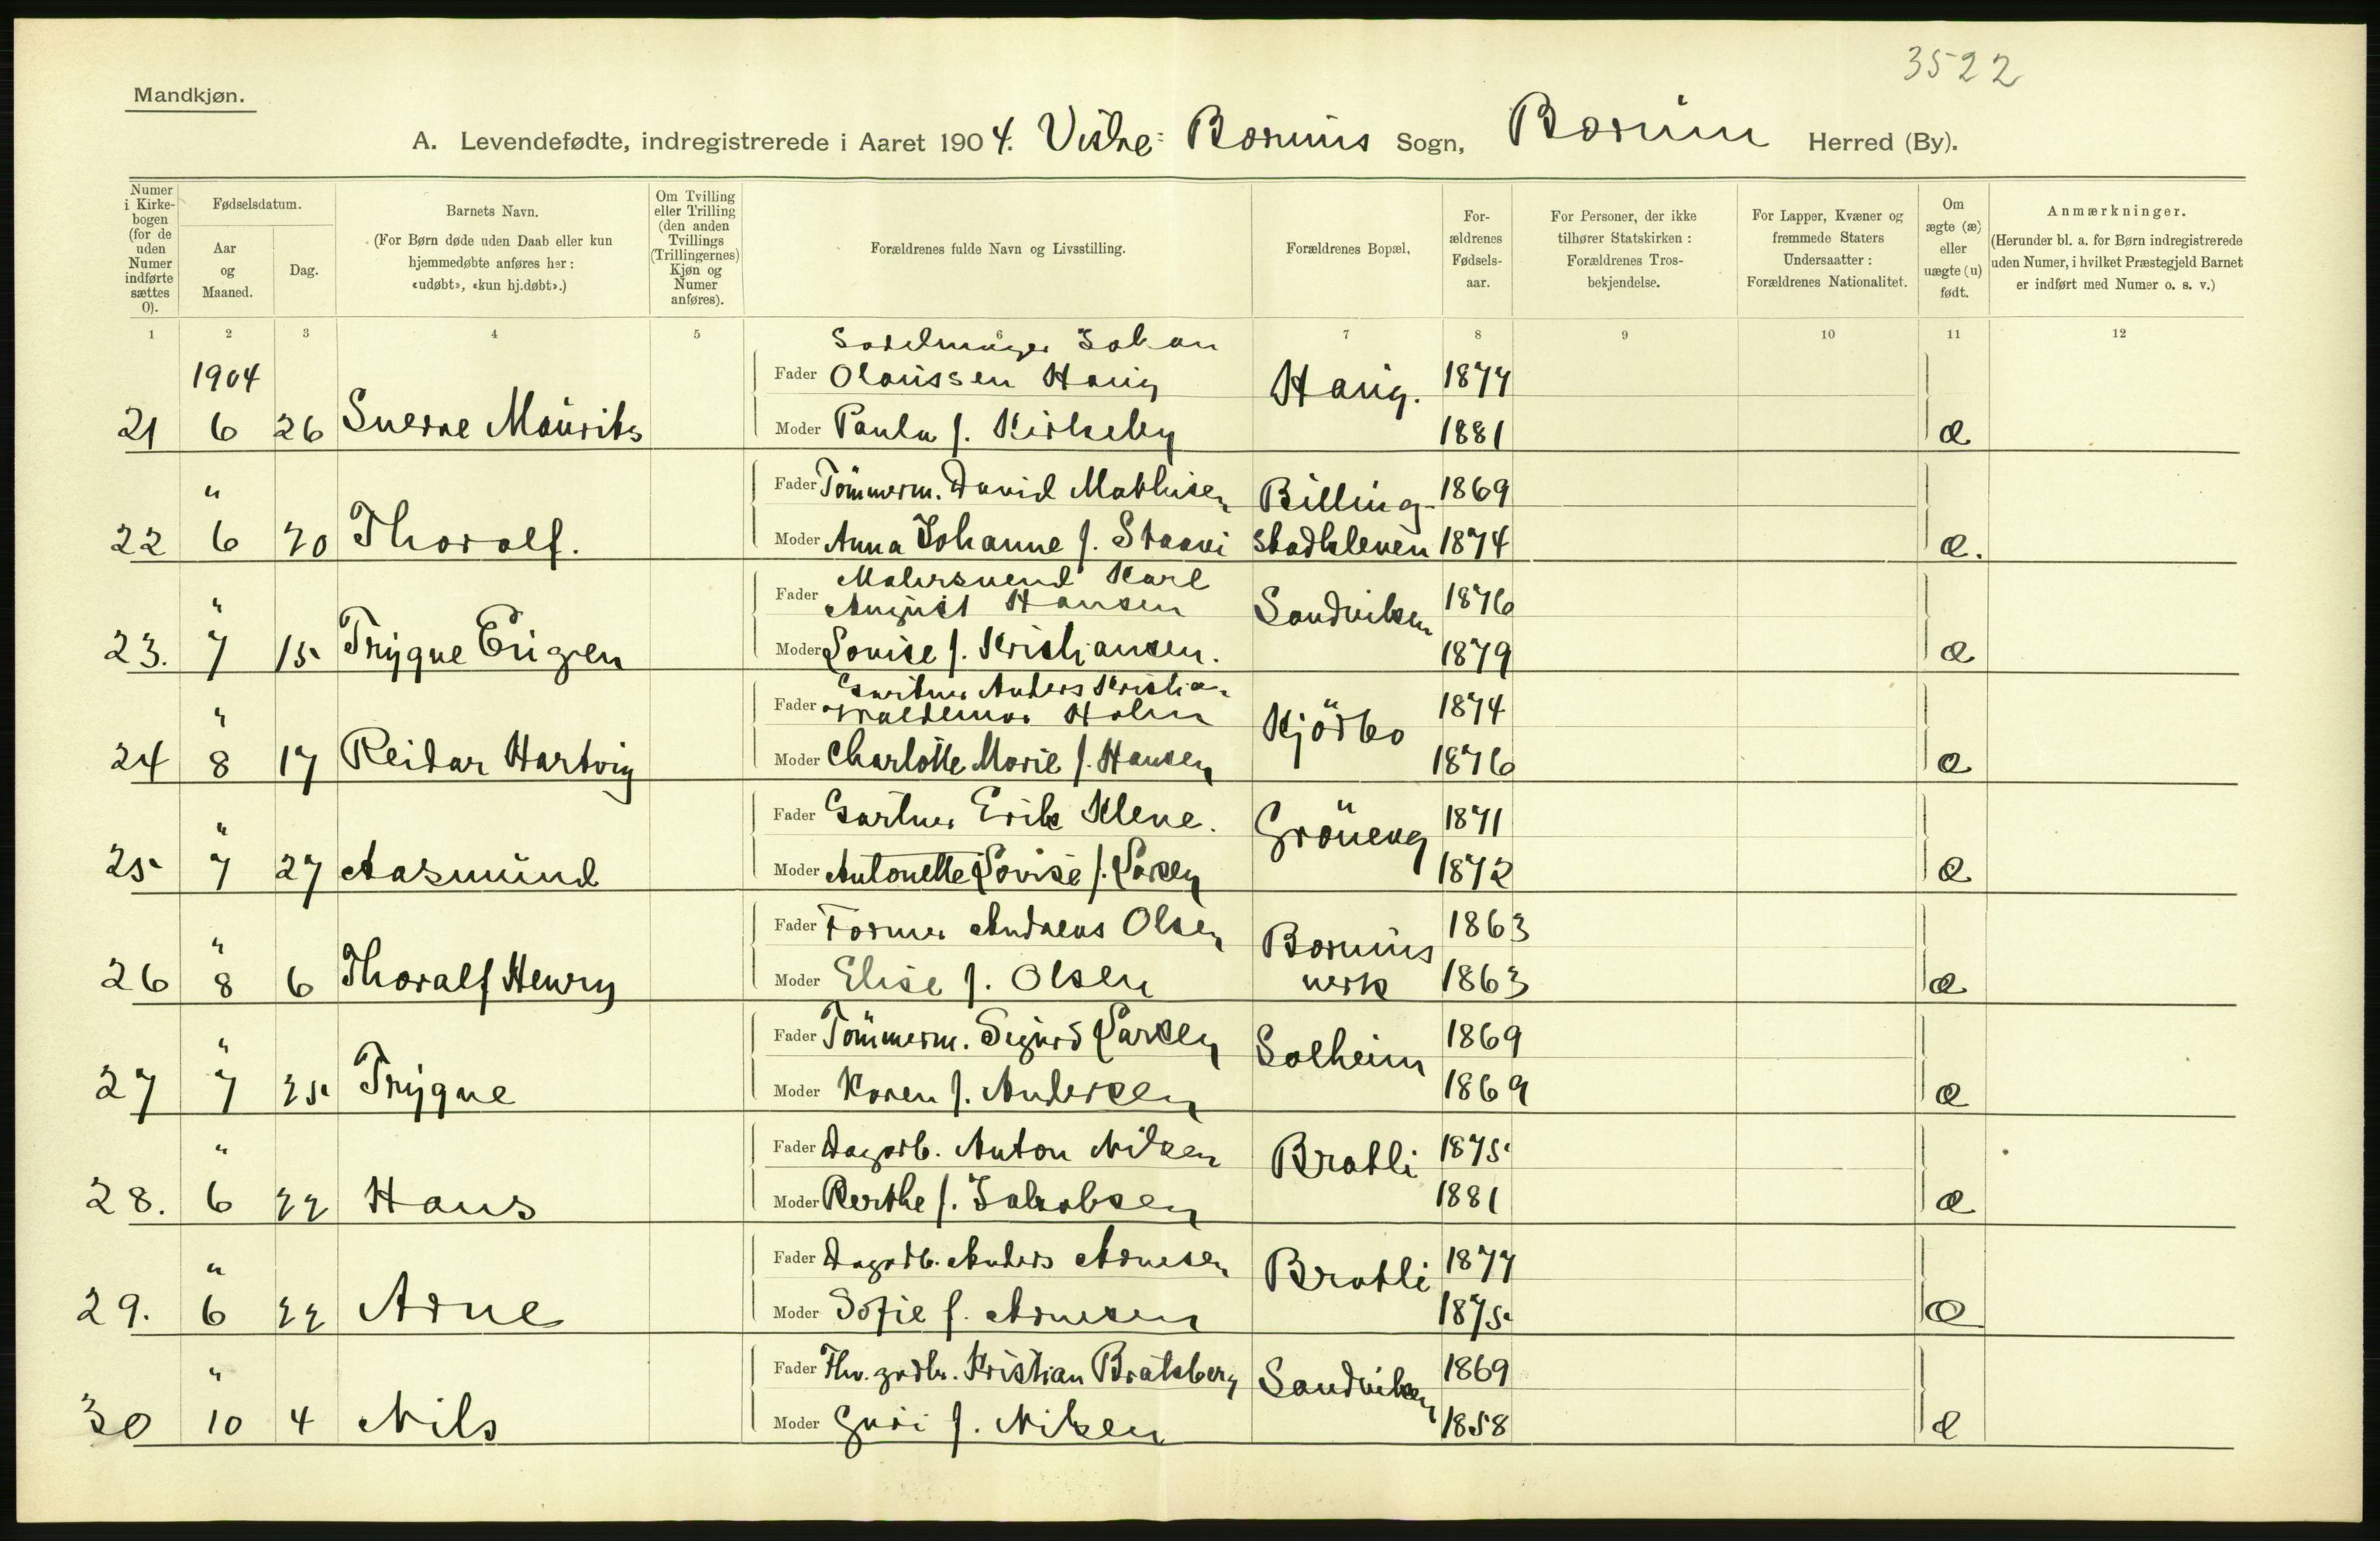 3522
Mandkjøn.
A. Levendefødte, indregistrerede i Aaret 1904. Vestre Bærums Sogn, Bærum Herred (By).
Numer i Kirkebogen (for de uden Numer indførte sættes 0).
Fødselsdatum.
Aar og Maaned.
Dag.
Barnets Navn.
(For Børn døde uden Daab eller kun hjemmedøbte anføres her: «udøbt», «kun hj.døbt».)
Om Tvilling eller Trilling (den anden Tvillings (Trillingernes) Kjøn og Numer anføres).
Forældrenes fulde Navn og Livsstilling.
Forældrenes Bopæl.
Forældrenes Fødselsaar.
For Personer, der ikke tilhører Statskirken: Forældrenes Trosbekjendelse.
For Lapper, Kvæner og fremmede Staters Undersaatter: Forældrenes Nationalitet.
Om ægte (æ) eller uægte (u) født.
Anmærkninger.
(Herunder bl. a. for Børn indregistrerede uden Numer, i hvilket Præstegjeld Barnet er indført med Numer o. s. v.)
1 2 3 4 5 6 7 8 9 10 11 12
1904
Sadelmager Johan
Fader Olaussen Haug Haug. 1877
21 6 26 Sverre Maurits Moder Paula f. Kirkeby 1881 æ
" Fader Tömmerm. David Mathisen Billing- 1869
22 6 20 Thoralf. Moder Anna Johanne f. Staavi stadkleven 1874 æ.
Malersvend Karl
" Fader August Hansen Sandviken 1876
23. 7 15 Trygve Eugen Moder Lovise f. Kristiansen. 1879 æ
Gartner Anders Kristian
" Fader Valdemar Holm Kjörbo 1874
24 8 17 Reidar Hartvig Moder Charlotte Marie f. Hansen 1876 æ
" Fader Gartner Erik Kleve. Gröneng 1871
25 7 27 Aasmund Moder Antonette Lovise f. Larsen 1872 æ
" Fader Former Andreas Olsen Bærums 1863
26 8 6 Thoralf Henry Moder Elise f. Olsen verk 1863 æ
" Fader Tömmerm. Sigurd Larsen Solheim 1869
27 7 25 Trygve Moder Karen f. Andersen 1869 æ
" Fader Dagarb. Anton Nilsen Bratli 1875
28. 6 22 Hans Moder Berthe f. Jakobsen 1881 æ
" Fader Dagarb. Anders Arnesen Bratli 1877
29. 6 22 Arne Moder Sofie f. Arnesen 1875 æ
" Fader Kristian Bratsberg Sandviken 1869
30 10 4 Nils Moder Guri f. Nilsen 1858 æ